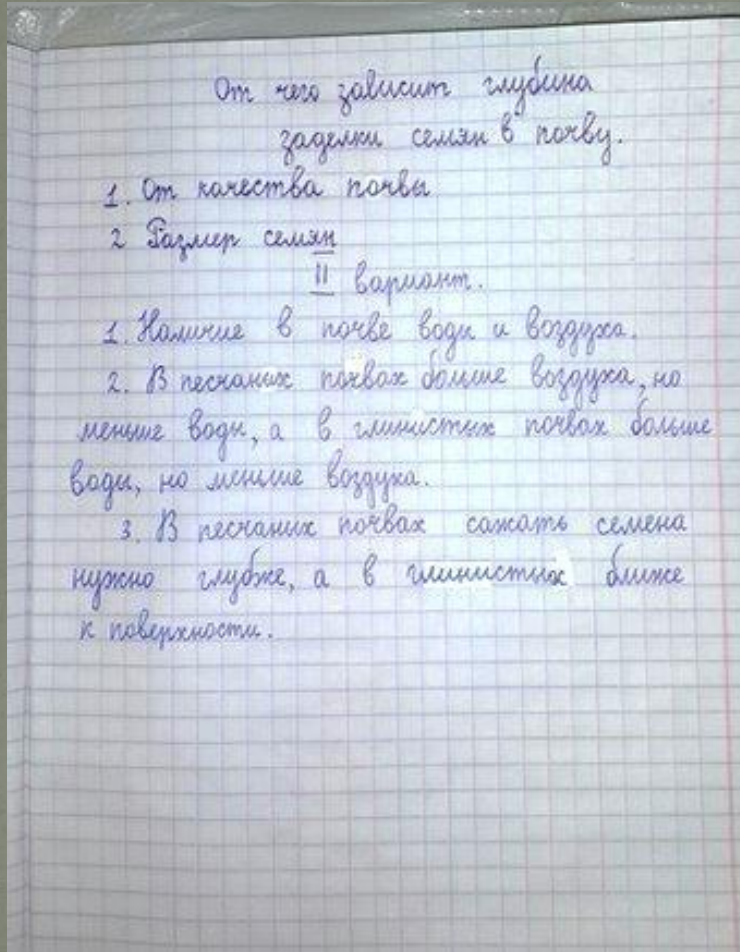 От чего зависит глубина
заделки семян в почву.
1. От качества почвы
2 Размер семян
II вариант.
1. Наличие в почве воды и воздуха.
2. В песчаных почвах больше воздуха, но
меньше воды, а в глинистых почвах больше
воды, но меньше воздуха.
3. В песчаных почвах сажать семена
нужно глубже, а в глинистых ближе
к поверхности.